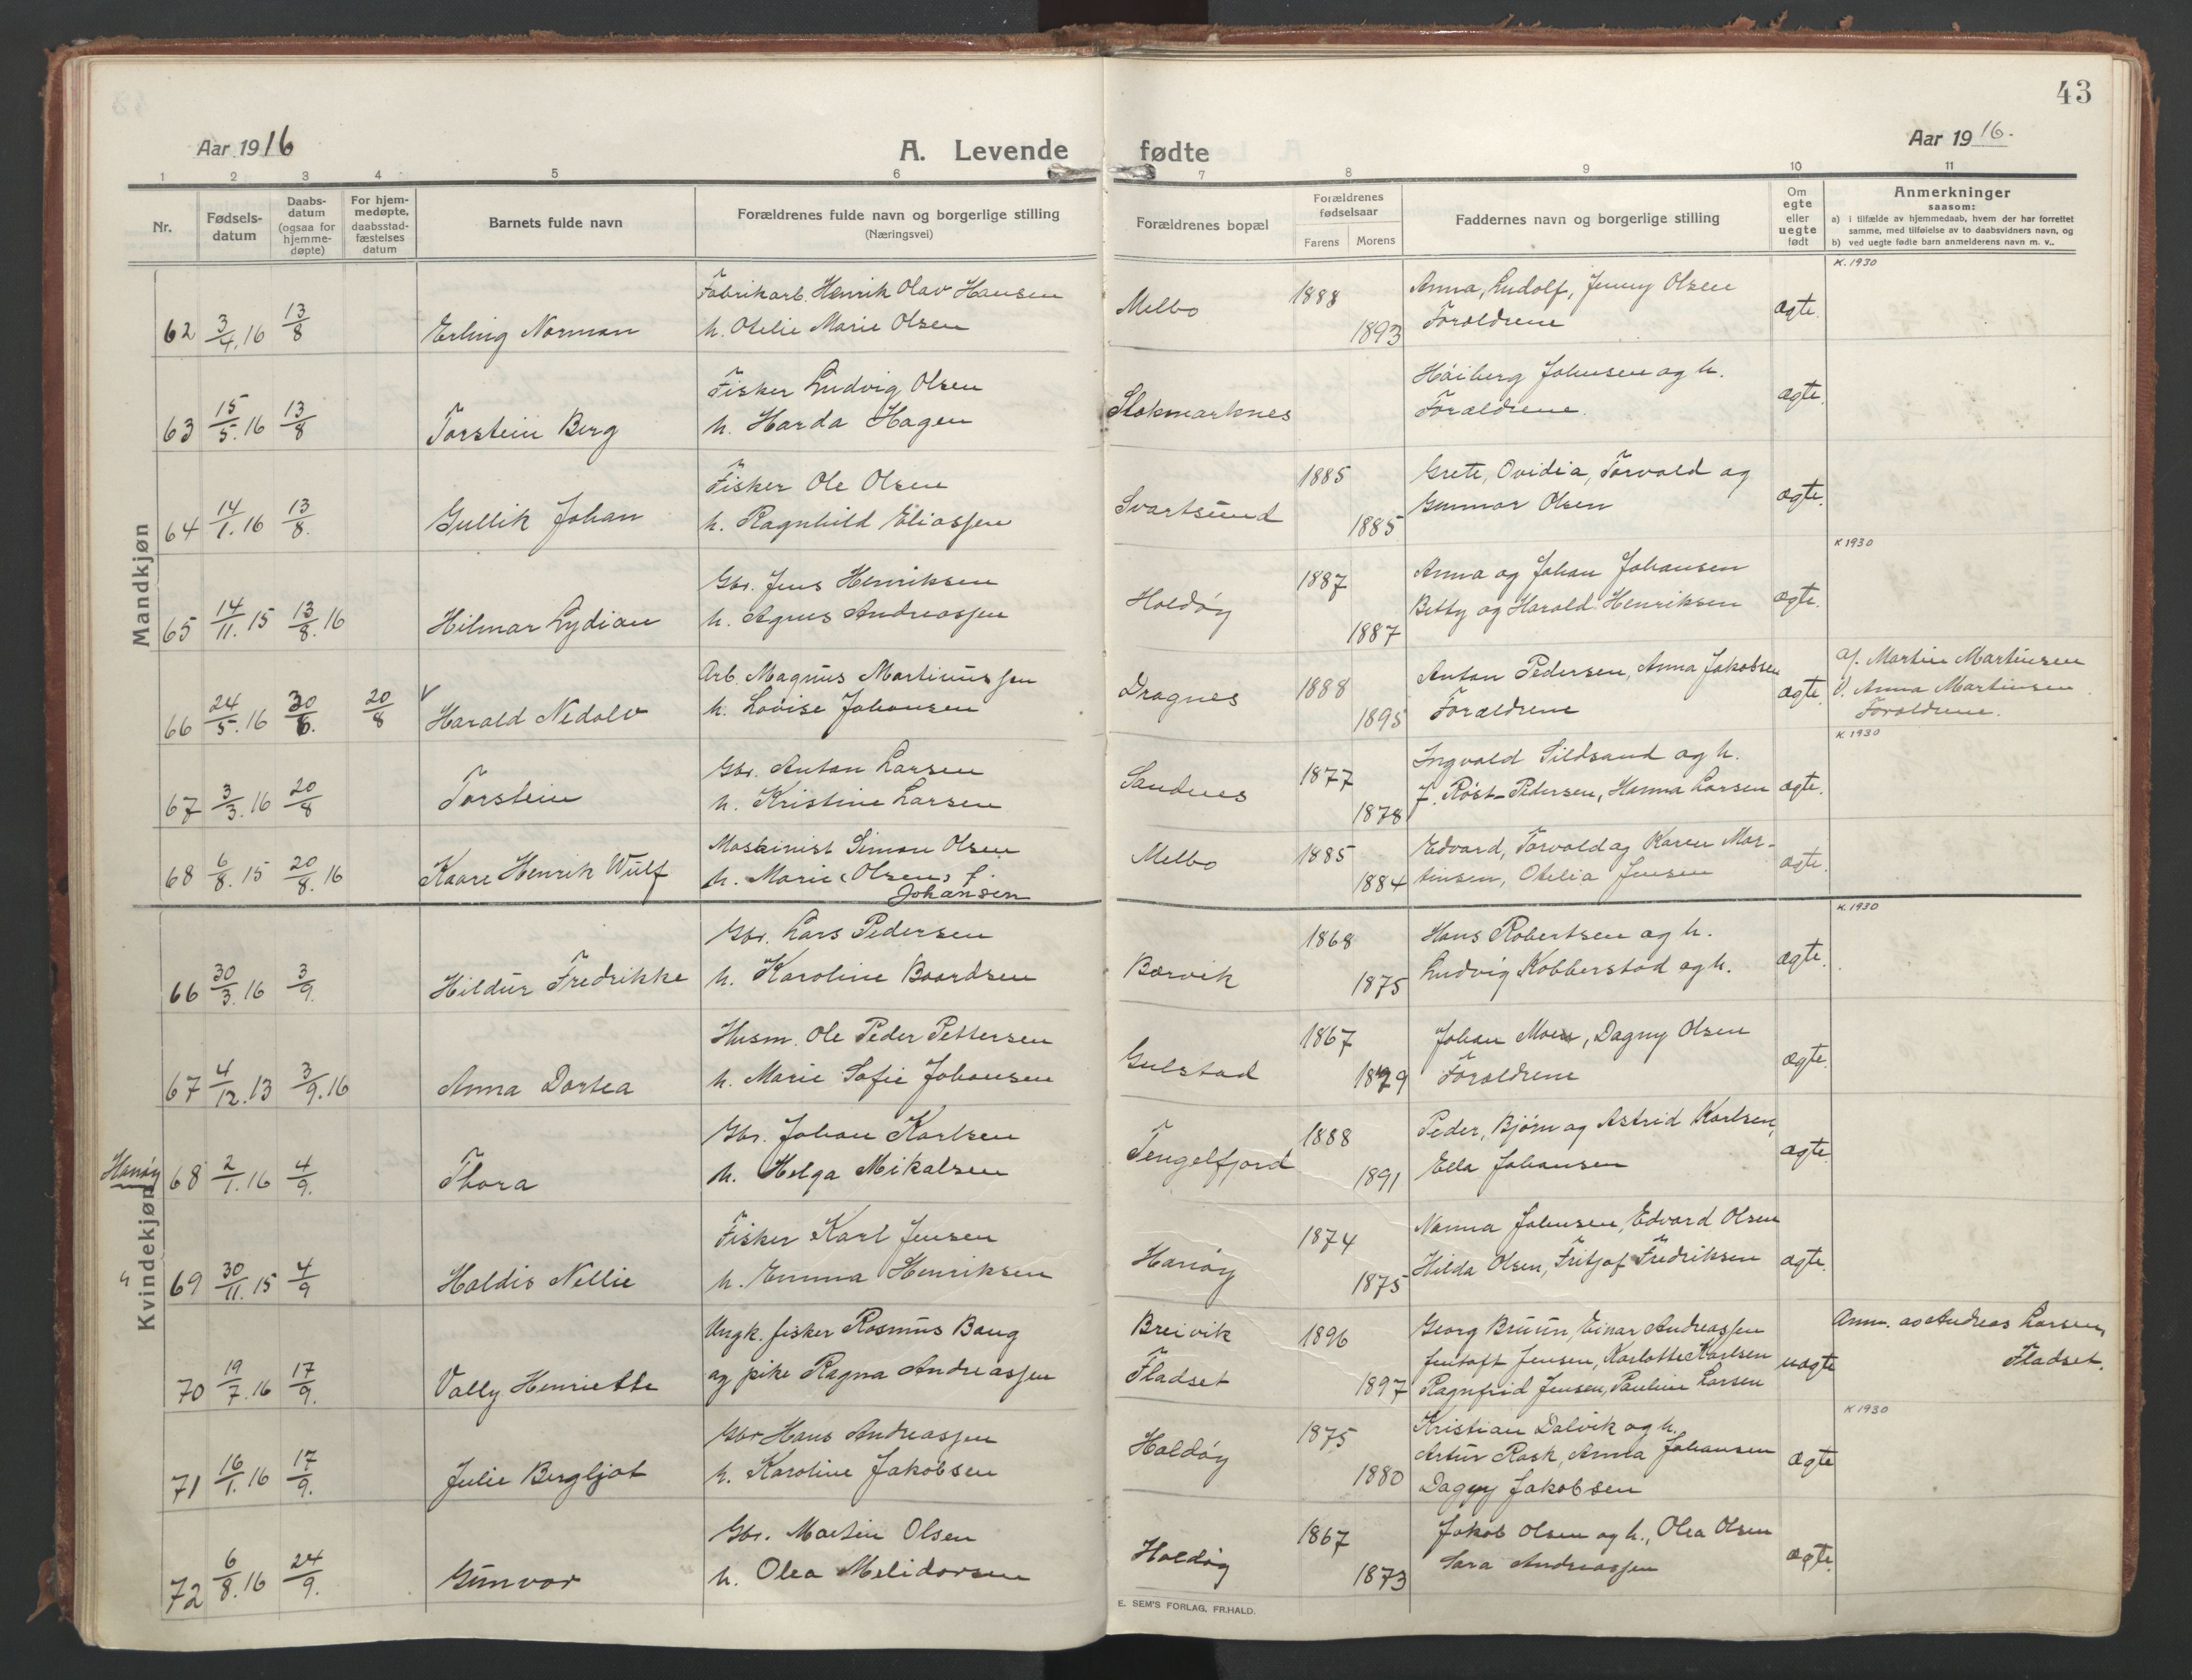 43
Aar 1916
A. Levende fødte
Aar 1916.
1 2 3 4 5 6 7 8 9 10 11
Nr.
Fødsels-
datum
Daabs-
datum
(ogsaa for
hjemme-
døpte)
For hjem-
medøpte,
daabsstad-
fæstelses
datum
Barnets fulde navn
Forældrenes fulde navn og borgerlige stilling
(Næringsvei)
Forældrenes bopæl
Forældrenes
fødselsaar
Farens Morens
Faddernes navn og borgerlige stilling
Om
egte
eller
uegte
født
Anmerkninger
saasom:
a) i tilfælde av hjemmedaab, hvem der har forrettet
samme, med tilføielse av to daabsvidners navn, og
b) ved uegte fødte barn anmelderens navn m. v..
Mandkjøn
K. 1930
Fabrikarb. Henrik Olav Hansen Melbo 1888 Anna, Ludolf, Jenny Olsen
62 3/4.16 13/8 Erling Norman h. Otelie Marie Olsen 1893 Forældrene ægte.
Fisker Ludvig Olsen Høiberg Johnsen og h.
63 15/5.16 13/8 Torstein Berg h. Harda Hagen Stokmarknes Forældrene. ægte.
Fisker Ole Olsen 1885 Grete, Ovidia, Torvald og
64 14/1.16 13/8. Gullik Johan h. Ragnhild Eliassen Svartsund 1885 Gunnar Olsen ægte.
K 1930
Gbr. Jens Henriksen 1887 Anna og Johan Johansen
65 14/11.15 13/8.16 Hilmar Lydian h. Agnes Andreassen Holdøy 1887 Betty og Harald Henriksen ægte.
Arb. Magnus Martinussen Dragnes 1888 Anton Pedersen, Anna Jakobsen af. Martin Martinsen
66 24/5.16 30/6. 20/8 V Harald Nedolv h. Lovise Johansen 1895 Forældrene ægte. V. Anna Martinsen
Forældrene.
K. 1930
Gbr. Anton Larsen 1877 Ingvald Sildsand og h.
67 3/3.16 20/8 Torstein h. Kristine Larsen Sandnes 1878 J. Røst-Pedersen, Hanna Larsen ægte.
Maskinist Simon Olsen Melbo 1885 Edvard, Torvald og Karen Mar-
68 6/8.15 20/8.16 Kaare Henrik Wulf h. Marie (Olsen) f. 1884 tinsen, Otelia Jensen ægte.
Johansen
Kvindekjøn
K. 1930
Gbr. Lars Pedersen 1868 Hans Robertsen og h.
66 30/3.16 3/9. Hildur Fredrikke h. Karoline Baardsen Børvik 1875 Ludvig Kobberstad og h. ægte.
Husm. Ole Peder Pettersen 1867 Johan Moen, Dagny Olsen
67 4/12.13 3/9.16 Anna Dortea h. Marie Sofie Johansen Gulstad 1879 Forældrene ægte.
Gbr. Johan Karlsen 1888 Peder, Bjørn og Astrid Karlsen,
Hanøy 68 2/1.16 4/9. Thora h. Helga Mikalsen Tengelfjord 1891 Ella Johansen ægte.
Fisker Karl Jensen 1874 Nanna Johnsen, Edvard Olsen
" 69 30/11.15 4/9 Haldis Nellie h. Emma Henriksen Hanøy 1875 Hilda Olsen, Fritjof Fredriksen ægte.
Ungk. fisker Rasmus Baug Breivik 1896 Georg Bruun, Einar Andreassen Anm. av Andreas Larsen,
70 19/7.16 17/9. Vally Henriette og pike Ragna Andreassen Fladset 1897 Jentoft Jensen, Karlotte Karlsen uægte Fladset.
Ragnfrid Jensen, Pauline Larsen
K 1930
Gbr Hans Andreassen 1875 Kristian Dalvik og h.
71 16/1.16 17/9. Julie Bergljot h. Karoline Jakobsen Holdøy 1880 Artur Rask, Anna Johansen ægte
Dagny Jakobsen
Gbr. Martin Olsen 1867 Jakob Olsen og h., Olea Olsen
72 6/8.16 24/9. Gunvor h. Olea Melidorsen Holdøy 1873 Sara Andreassen ægte.
E. SEM'S FORLAG, FR.HALD.